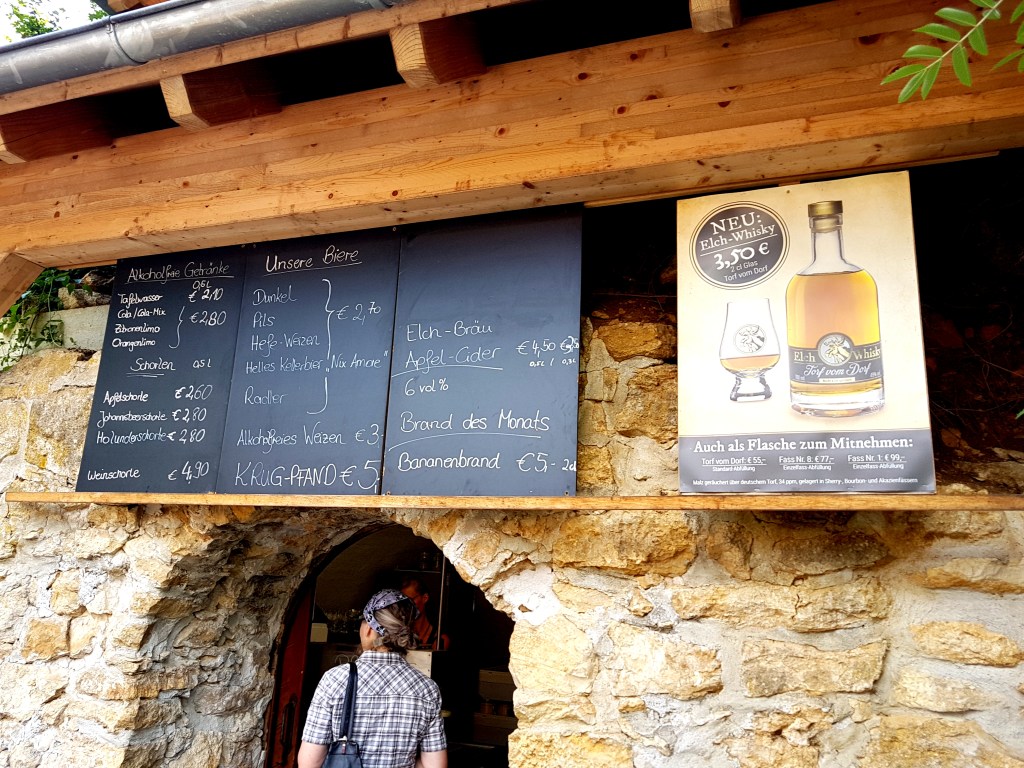 Alkoholfreie Getränke
0,5L
Tafelwasser € 2,10
Cola / Cola-Mix
Zitronenlimo € 2,80
Orangenlimo
Schorlen 0,5 L
Apfelschorle € 2,60
Johannisbeerschorle € 2,80
Holunderschorle € 2,80
Weinschorle € 4,90
Unsere Biere
Dunkel
Pils € 2,70
Hefe-Weizen
Helles Kellerbier
Radler
Alkoholfreies Weizen € 3,-
KRUG-PFAND € 5,-
Elch-Bräu
Apfel-Cider € 4,50
6 vol%
Brand des Monats
Bananenbrand € 5,- 2cl
NEU:
Elch-Whisky
3,50 €
2 cl Glas
Torf vom Dorf
Elch Whisky
Torf vom Dorf
Auch als Flasche zum Mitnehmen:
Torf vom Dorf: € 55,– Fass Nr. 8: € 77,– Fass Nr. 1: € 99,–
Standard-Abfüllung Einzelfass-Abfüllung Einzelfass-Abfüllung
Malz geräuchert über deutschem Torf, 34 ppm, gelagert in Sherry-, Bourbon- und Akazienfässern